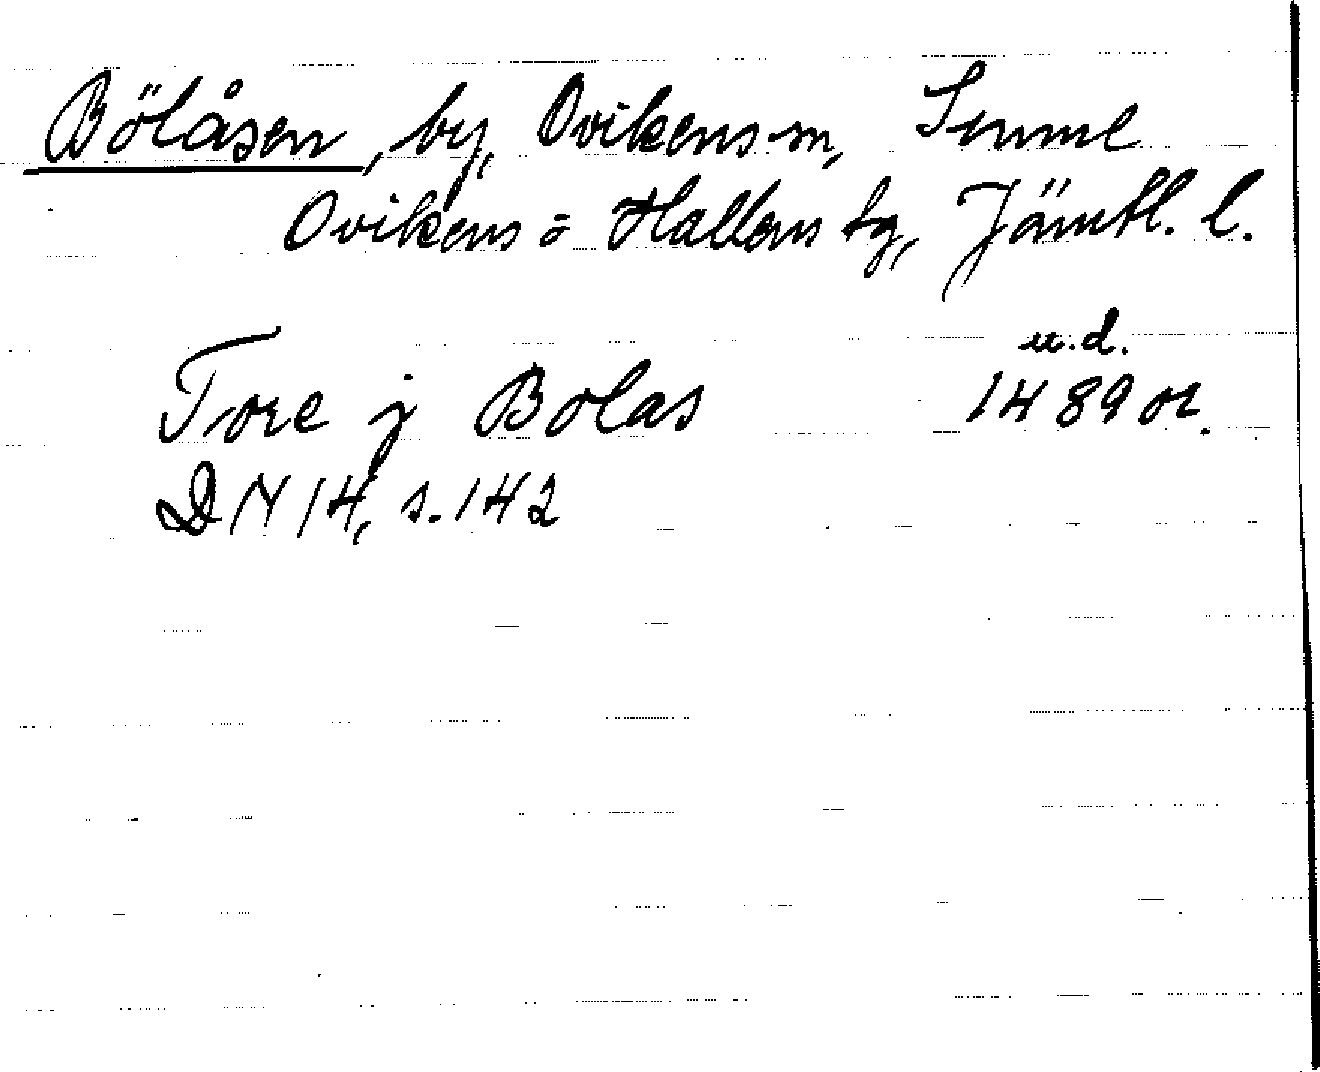 Bölåsen, by, Ovikens sn, Sunne
Ovikens o Hallens tg, Jämtl. l.
u.d.
Tore j Bolas 1489 or.
DN 14, s. 142